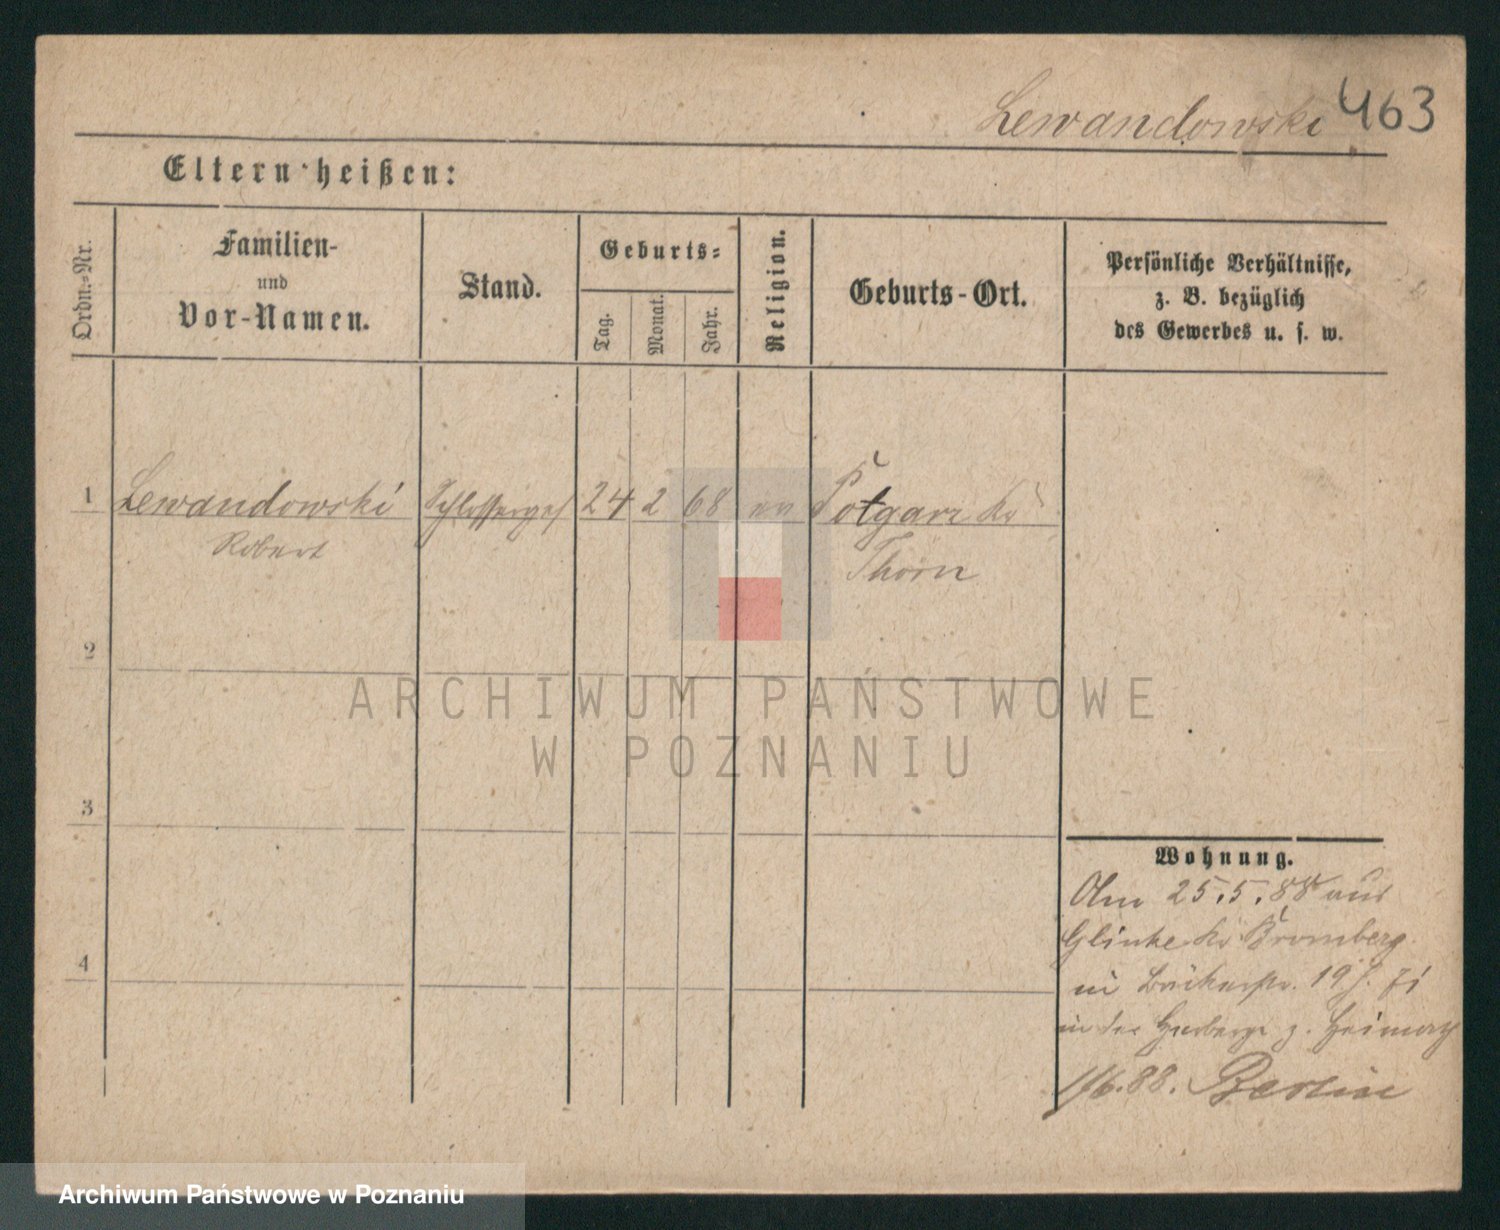 Lewandowski 463
Eltern heißen:
Ordn.-Nr.
Familien-
und
Vor-Namen.
Stand.
Geburts-
Tag.
Monat.
Jahr.
Religion.
Geburts-Ort.
Persönliche Verhältnisse,
z. B. bezüglich
des Gewerbes u. s. w.
1 Lewandowski Schlosserges 24 2 68 ev Potgarz Kr
Robert Thorn
2
3
4
ARCHIWUM PAŃSTWOWE
W POZNANIU
Wohnung.
25.5.88 aus
Glinke Kr Bromberg
in 19
in der Herberge z. Heimath
1/6.88. Berlin
Archiwum Państwowe w Poznaniu